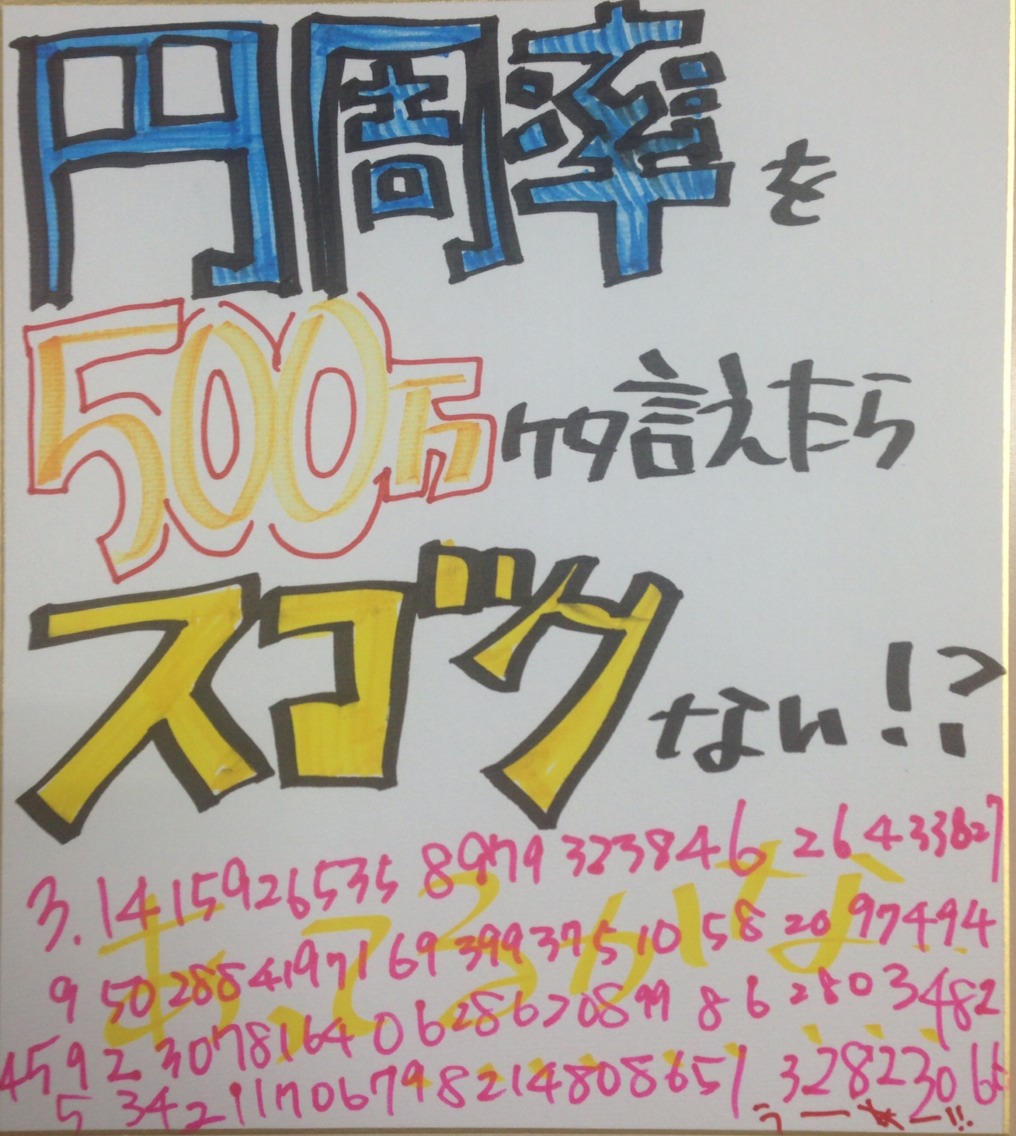 円周率を
500万ケタ言えたら
スゴクない!?
3.1415926535 8979 323846 26433827
9 502884197169399375105820 97494
4592 30781640628620899862803482
5 342117067982148086513282306
あってるかな